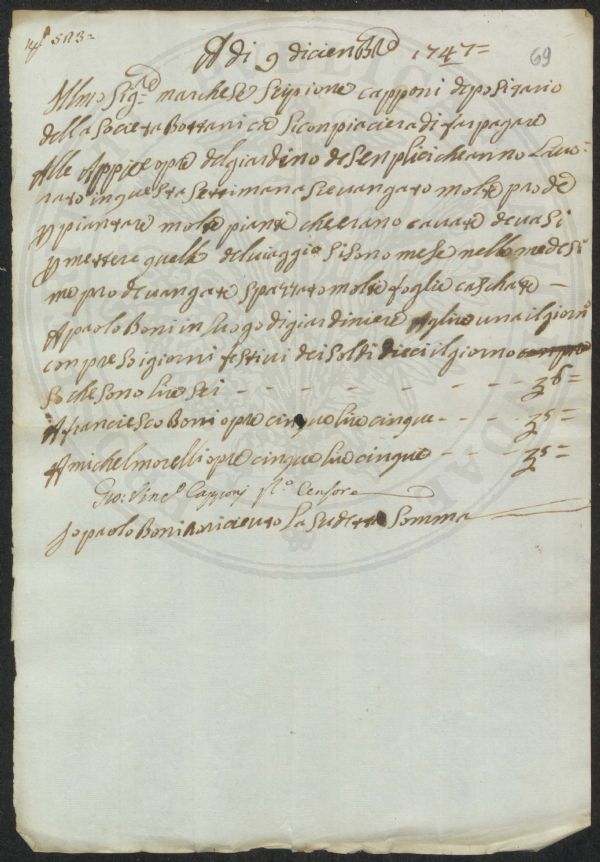 No 513=
A di 9 dicienbre 1747=
69
Illmo Sigre marchese Scipione capponi depositario
della Societa Bottanicha si conpiaciera di far pagare
Alle Appie opre del giardino de Senplici che anno Lavo
rato in questa Settimana si e vangato molte prode
p piantare molte piante che erano cavate de vasi
p mettere quelle del viaggio si sono mese nelle medesi
me prode vangate spazzato molte foglie caschate –
A paolo Boni in luogo di giardiniere Aglire una il giorno
conpreso i giorni festivi dei soldi dieci il giorno conpre
so che sono lire sei - - - - - - - £ 6=
A franciesco Boni opre cinque lire cinque - - - £ 5=
A michel morelli opre cinque lire cinque - - - £ 5=
Gio: Vinco Capponi Censore
Io paolo Boni o riceuto la Sudetta Somma